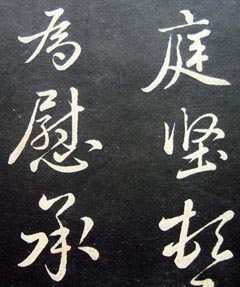 庭坚顿
为慰承